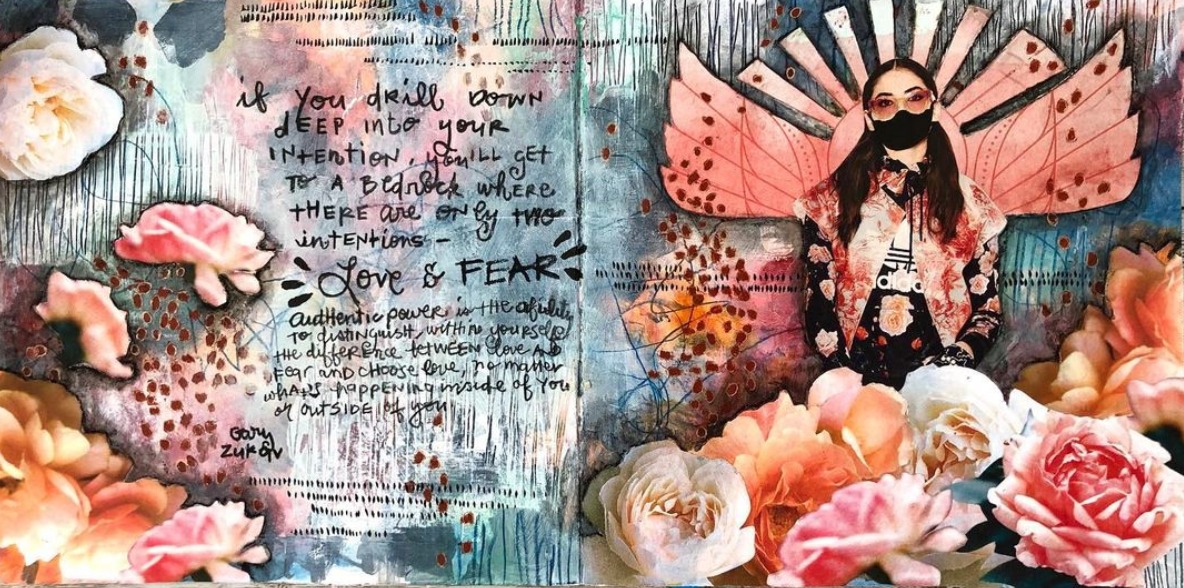 if you drill down
deep into your
intention, you'll get
to a bedrock where
there are only two
intentions -
Love & FEAR
authentic power is the ability
to distinguish within yourself
the difference between love and
fear and choose love, no matter
what's happening inside of you
or outside of you
Gary
Zukav
adidas